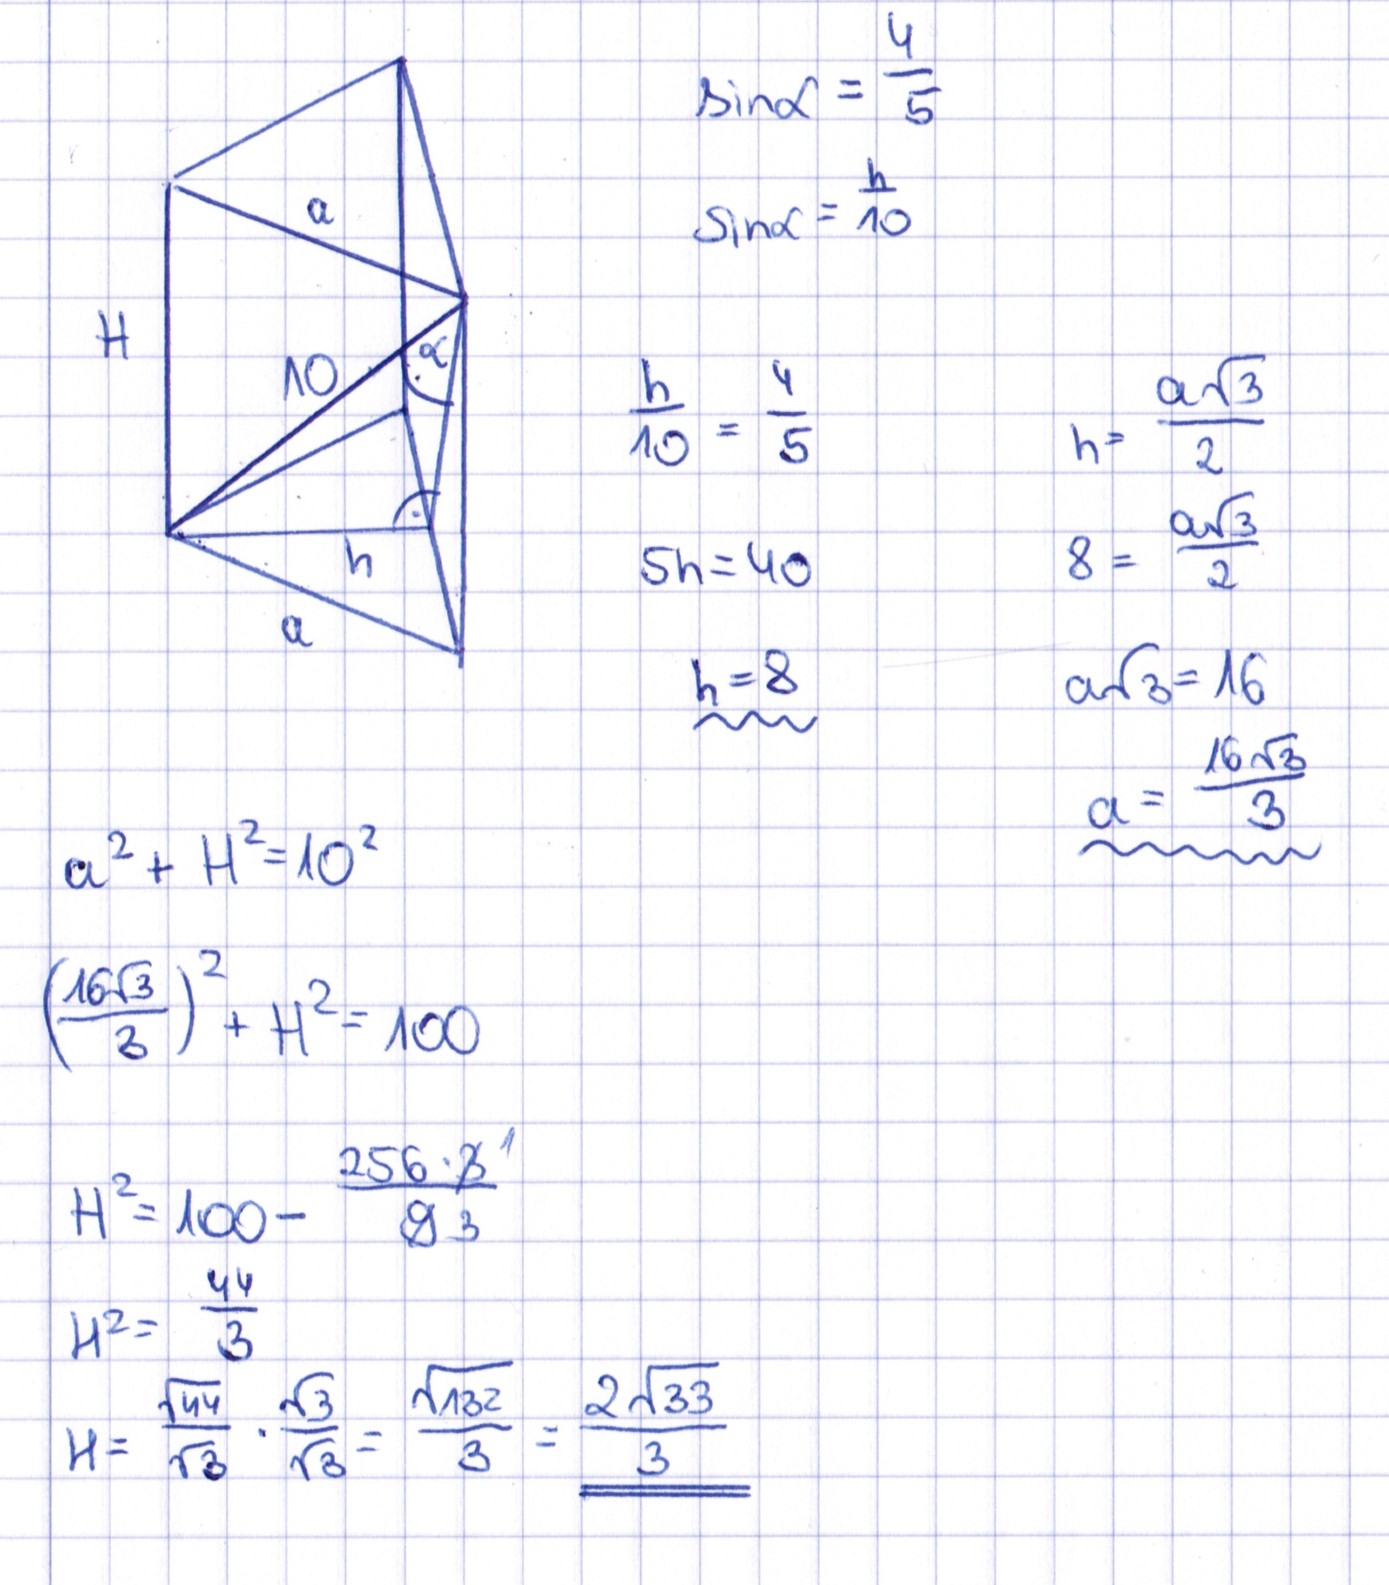 a
H
10
α
h
a
sinα = 4/5
sinα = h/10
h/10 = 4/5
5h = 40
h = 8
h = a√3/2
8 = a√3/2
a√3 = 16
a = 16√3/3
a² + H² = 10²
(16√3/3)² + H² = 100
H² = 100 - 256·3 1/9 3
H² = 44/3
H = √44/√3 · √3/√3 = √132/3 = 2√33/3